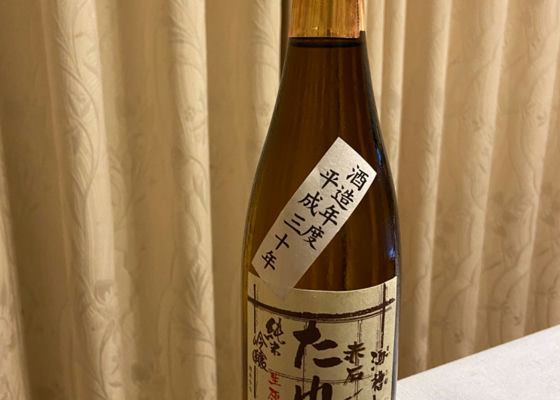 酒造年度
平成三十年
赤石
たゆ
純米
吟醸
生原